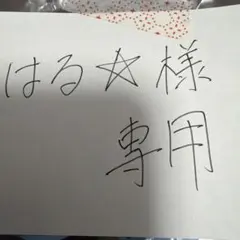 はる☆様
専用